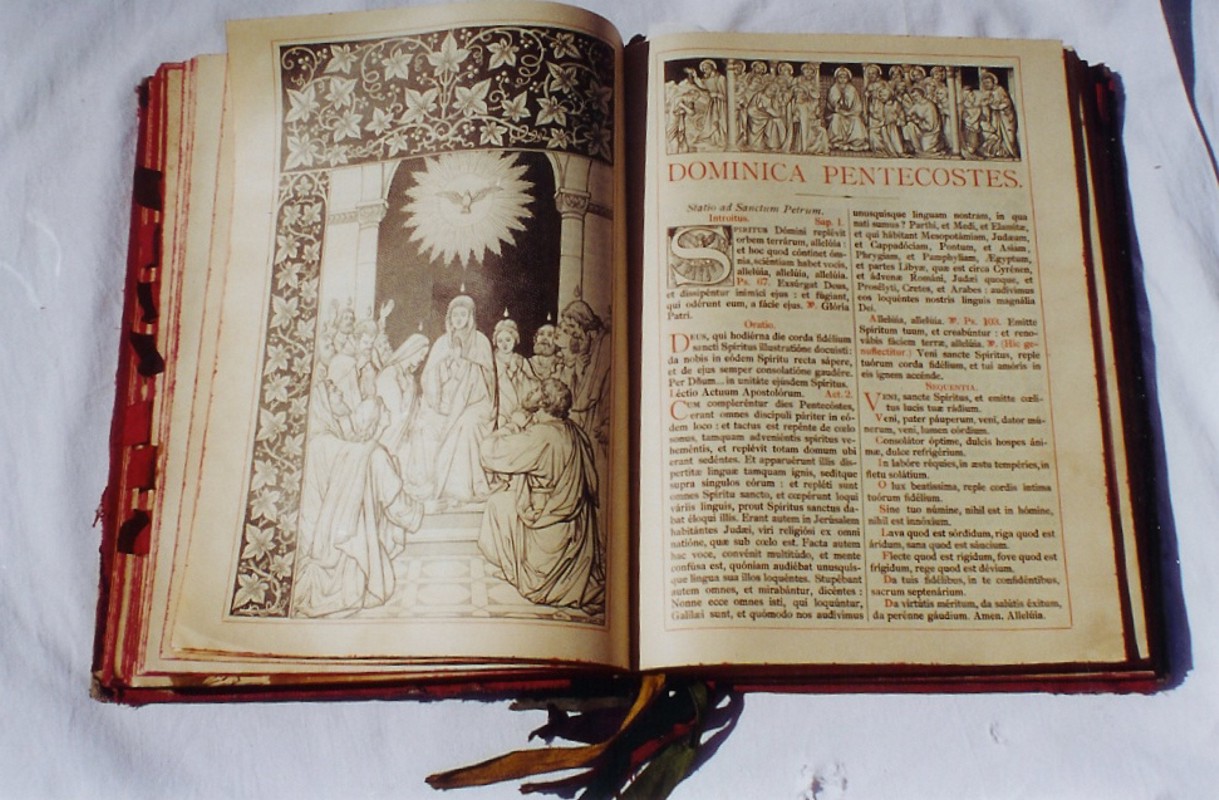 DOMINICA PENTECOSTES.
Statio ad Sanctum Petrum.
Introitus. Sap. 1.
SPIRITUS Dómini replévit
orbem terrárum, allelúia :
et hoc quod cóntinet óm-
nia, sciéntiam habet vocis,
allelúia, allelúia, allelúia.
Ps. 67. Exsúrgat Deus,
et dissipéntur inimíci ejus : et fúgiant,
qui odérunt eum, a fácie ejus. ℣. Glória
Patri.
Oratio.
DEUS, qui hodiérna die corda fidélium
sancti Spíritus illustratióne docuísti:
da nobis in eódem Spíritu recta sápere,
et de ejus semper consolatióne gaudére.
Per Dñum... in unitáte ejúsdem Spíritus.
Léctio Actuum Apostolórum. Act. 2.
CUM compleréntur dies Pentecóstes,
erant omnes discípuli páriter in eó-
dem loco : et factus est repénte de cœlo
sonus, tamquam adveniéntis spíritus ve-
heméntis, et replévit totam domum ubi
erant sedéntes. Et apparuérunt illis dis-
pertítæ linguæ tamquam ignis, sedítque
supra síngulos eórum : et repléti sunt
omnes Spíritu sancto, et cœpérunt loqui
váriis linguis, prout Spíritus sanctus da-
bat éloqui illis. Erant autem in Jerúsalem
habitántes Judǽi, viri religiósi ex omni
natióne, quæ sub cœlo est. Facta autem
hac voce, convénit multitúdo, et mente
confúsa est, quóniam audiébat unusquís-
que lingua sua illos loquéntes. Stupébant
autem omnes, et mirabántur, dicéntes :
Nonne ecce omnes isti, qui loquúntur,
Galilǽi sunt, et quómodo nos audívimus
unusquísque linguam nostram, in qua
nati sumus ? Parthi, et Medi, et Elamítæ,
et qui hábitant Mesopotámiam, Judǽam,
et Cappadóciam, Pontum, et Asiam,
Phrygiam, et Pamphyliam, Ægyptum,
et partes Libyæ, quæ est circa Cyrénen,
et ádvenæ Románi, Judǽi quoque, et
Prosélyti, Cretes, et Arabes : audívimus
eos loquéntes nostris linguis magnália
Dei.
Allelúia, allelúia. ℣. Ps. 103. Emítte
Spíritum tuum, et creabúntur : et reno-
vábis fáciem terræ, allelúia. ℣. (Hic ge-
nuflectitur.) Veni sancte Spíritus, reple
tuórum corda fidélium, et tui amóris in
eis ignem accénde.
SEQUENTIA.
VENI, sancte Spíritus, et emítte cœli-
tus lucis tuæ rádium.
Veni, pater páuperum, veni, dator mú-
nerum, veni, lumen córdium.
Consolátor óptime, dulcis hospes áni-
mæ, dulce refrigérium.
In labóre réquies, in æstu tempéries, in
fletu solátium.
O lux beatíssima, reple cordis íntima
tuórum fidélium.
Sine tuo númine, nihil est in hómine,
nihil est innóxium.
Lava quod est sórdidum, riga quod est
áridum, sana quod est sáucium.
Flecte quod est rígidum, fove quod est
frígidum, rege quod est dévium.
Da tuis fidélibus, in te confidéntibus,
sacrum septenárium.
Da virtútis méritum, da salútis éxitum,
da perénne gáudium. Amen. Allelúia.